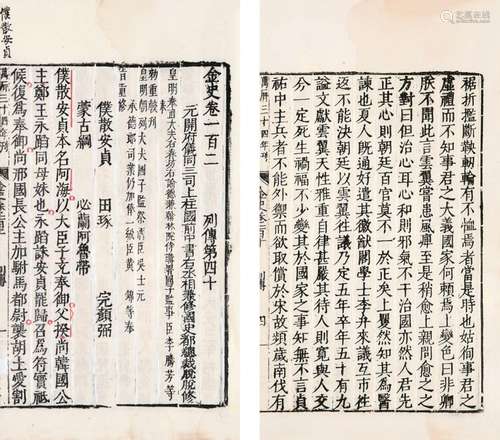 稽折檻斷鞅軔輪有不恤焉者當是時也姑徇事君之
虛禮而不知事君之大義國家何賴焉上變色曰非卿
朕不聞此言雲翼嘗患風痺至是稍愈上親問愈之之
方對曰但治心耳心和則邪氣不干治國亦然人君先
正其心則朝廷百官莫不一於正矣上矍然知其為醫
諫也夏人既通好遣其徽猷閣學士李弁來議互市往
返不能決朝廷以雲翼往議乃定五年卒年五十有九
諡文獻雲翼天性雅重自律甚嚴其待人則寬與人交
分一定死生禍福不少變其於國家之事知無不言貞
祐中主兵者不能外禦而欲取償於宋故頻歲南伐有
萬曆三十四年刊
金史卷一百二
列傳第四十
元開府儀同三司上柱國前中書右丞相兼修國史都總裁脫脫修
皇明
李騰芳等
皇明朝列大夫國子監祭酒臣吳士元
承德郎司業仍加俸一級臣黃錦等奉
旨重修
僕散安貞
田琢
完顏弼
蒙古綱
必蘭阿魯帶
僕散安貞本名阿海以大臣子充奉御父揆尚韓國公
主鄭王永蹈同母妹也永蹈誅安貞罷歸召為符寶祗
候復為奉御尚邢國長公主加駙馬都尉襲胡土愛割
萬曆三十四年刊
僕散安貞